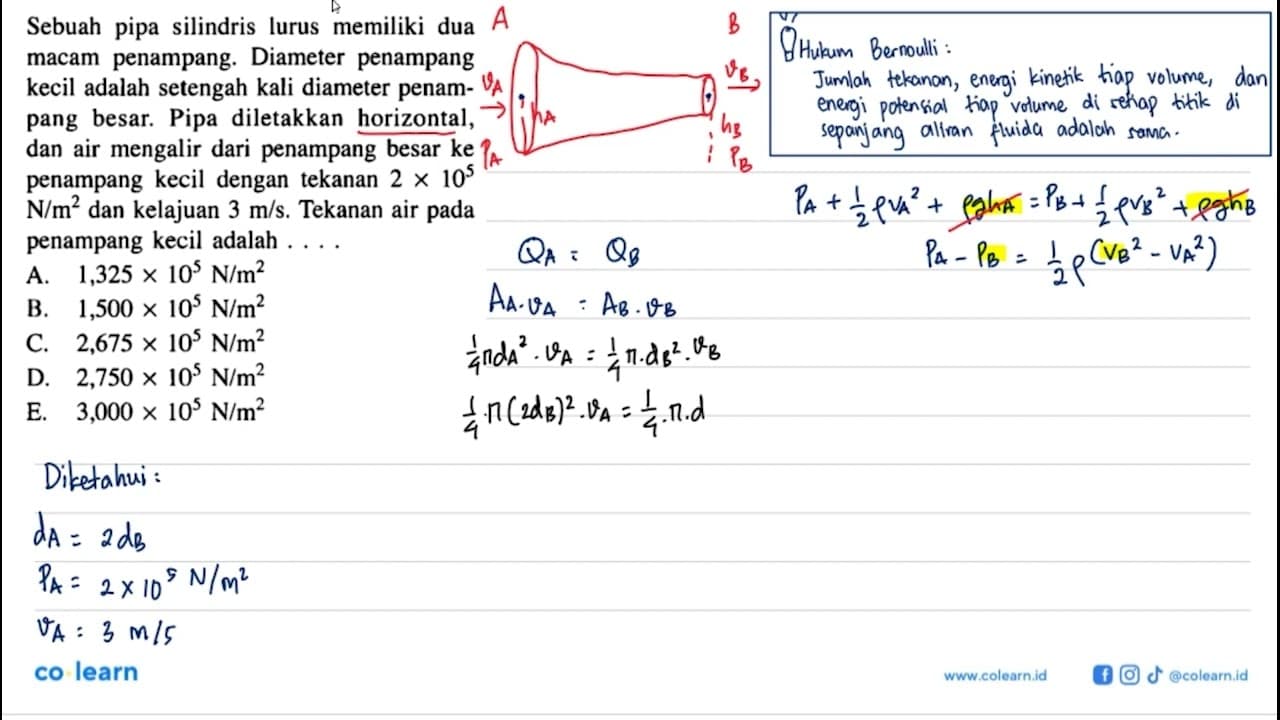 Sebuah pipa silindris lurus memiliki dua
macam penampang. Diameter penampang
kecil adalah setengah kali diameter penam-
pang besar. Pipa diletakkan horizontal,
dan air mengalir dari penampang besar ke
penampang kecil dengan tekanan 2 × 10⁵
N/m² dan kelajuan 3 m/s. Tekanan air pada
penampang kecil adalah . . . .
A. 1,325 × 10⁵ N/m²
B. 1,500 × 10⁵ N/m²
C. 2,675 × 10⁵ N/m²
D. 2,750 × 10⁵ N/m²
E. 3,000 × 10⁵ N/m²
A
B
vA
hA
PA
vB
hB
PB
Hukum Bernoulli :
Jumlah tekanan, energi kinetik tiap volume, dan
energi potensial tiap volume di setiap titik di
sepanjang aliran fluida adalah sama.
PA + 1/2 ρvA² + ρghA = PB + 1/2 ρvB² + ρghB
PA - PB = 1/2 ρ(vB² - vA²)
QA = QB
AA.vA = AB.vB
1/4 πdA² . vA = 1/4 π.dB².vB
1/4 .π(2dB)².vA = 1/4 .π.d
Diketahui :
dA = 2dB
PA = 2 × 10⁵ N/m²
vA = 3 m/s
co learn
www.colearn.id
@colearn.id